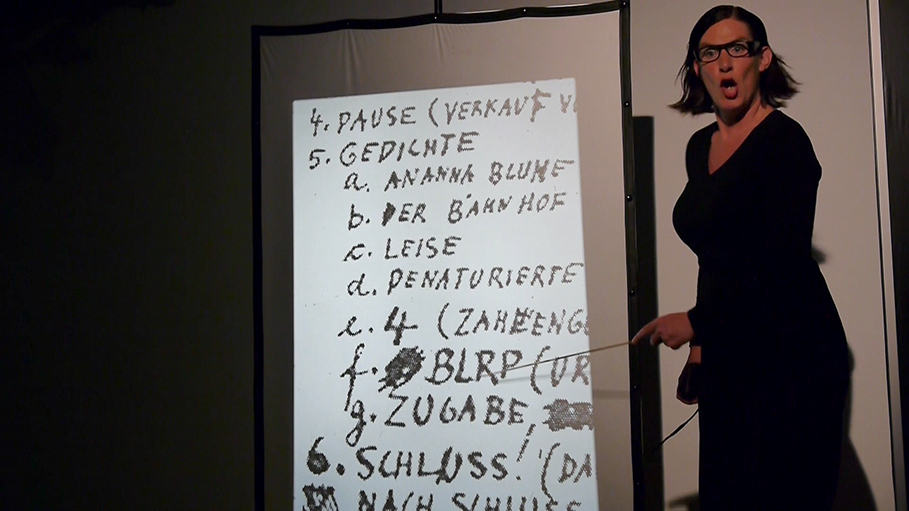 4. PAUSE (VERKAUF V
5. GEDICHTE
a. AN ANNA BLUME
b. DER BAHNHOF
c. LEISE
d. DENATURIERTE
e. 4 (ZAHLENG
f. BLRP (UR
g. ZUGABE,
6. SCHLUSS! (DA
NACH SCHLUSS